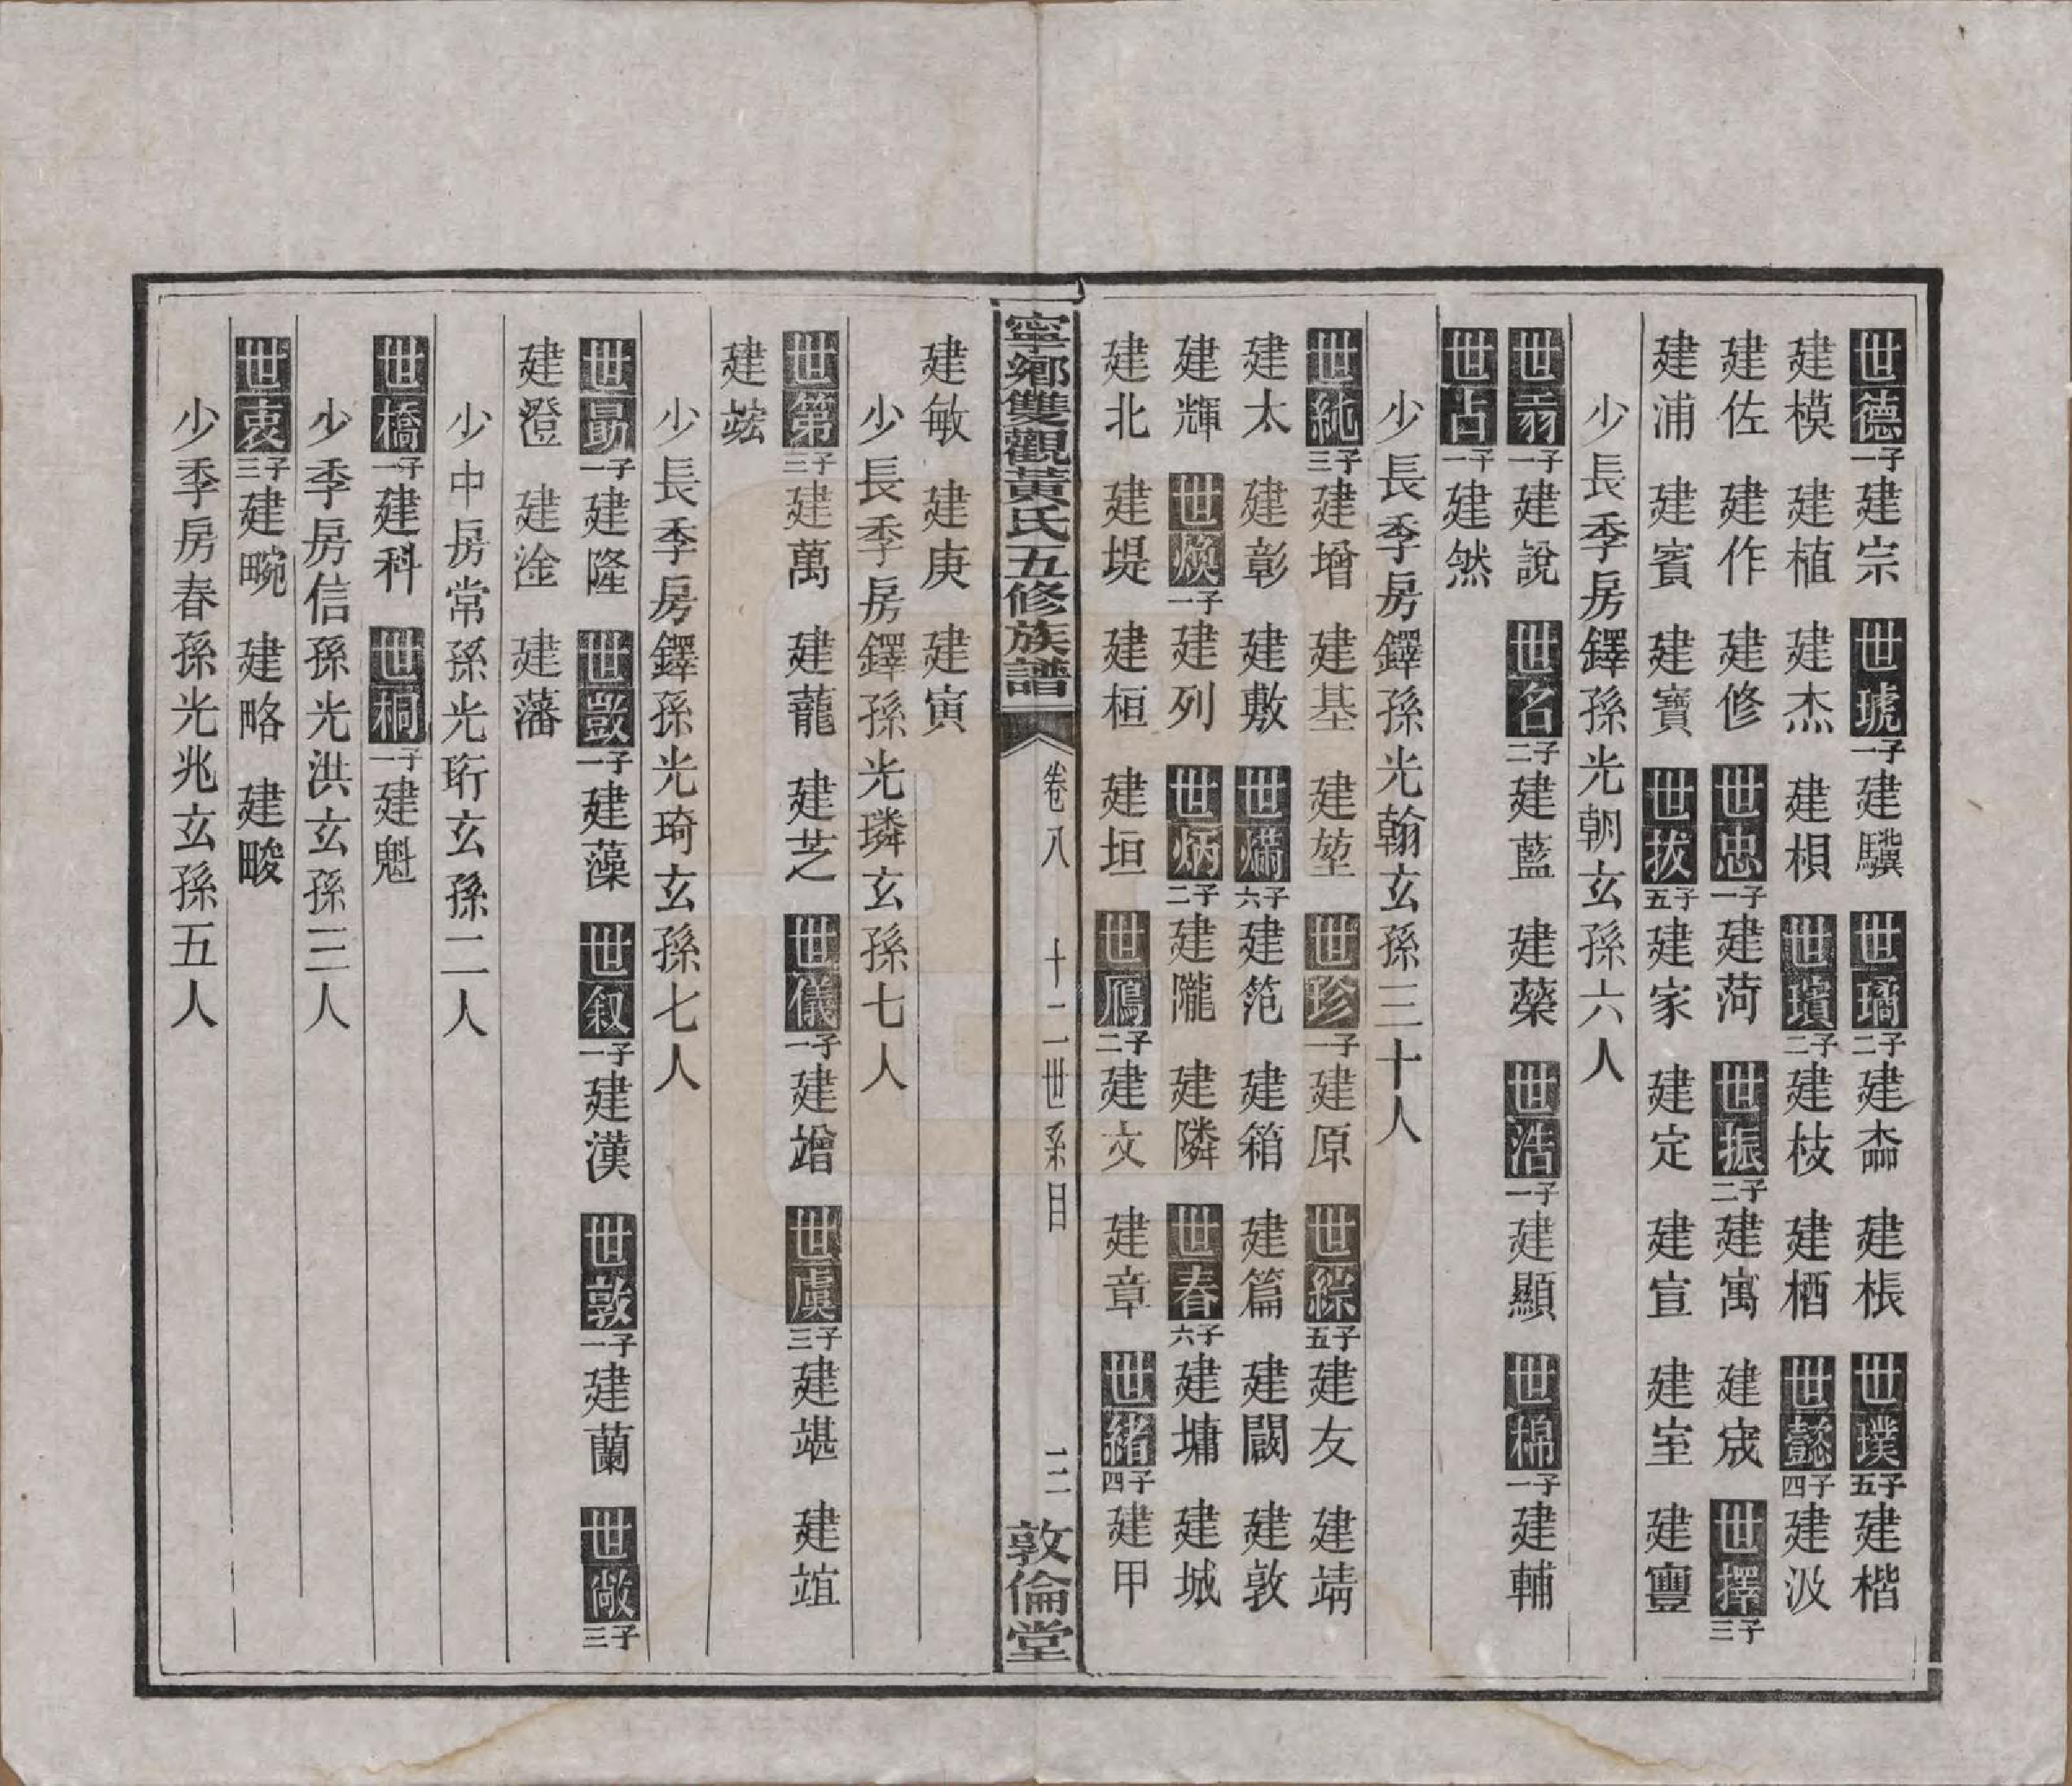 世德一子建宗 世琥一子建驥 世璚二子建桼 建棖 世璞五子建楷
建模 建植 建杰 建梖 世璸二子建枝 建栖 世懿四子建汲
建佐 建作 建修 世忠一子建菏 世振二子建寓 建宬 世擇三子
建浦 建賓 建寶 世拔五子建家 建定 建宣 建室 建寷
少長季房鐸孫光朝玄孫六人
世翡一子建說 世名二子建藍 建蘂 世浩一子建顯 世棉一子建輔
世占一子建然
少長季房鐸孫光翰玄孫三十人
世純三子建增 建基 建堃 世珍一子建原 世綜五子建友 建靖
建太 建彰 建敷 世爀六子建笵 建箱 建篇 建闕 建敦
建輝 世煥一子建列 世炳二子建隴 建隣 世春六子建墉 建城
建北 建堤 建桓 建垣 世鴈二子建文 建章 世緒四子建甲
寧鄉雙觀黃氏五修族譜 卷八 十二世系目 二 敦倫堂
建敏 建庚 建寅
少長季房鐸孫光璘玄孫七人
世第三子建萬 建蘢 建芝 世儀一子建竲 世虞三子建堪 建竩
建竑
少長季房鐸孫光琦玄孫七人
世勗一子建隆 世敳一子建藻 世叙一子建漢 世敦一子建蘭 世敞三子
建澄 建淦 建藩
少中房常孫光珩玄孫二人
世橋一子建科 世桐一子建魁
少季房信孫光洪玄孫三人
世衷三子建畹 建略 建畯
少季房春孫光兆玄孫五人